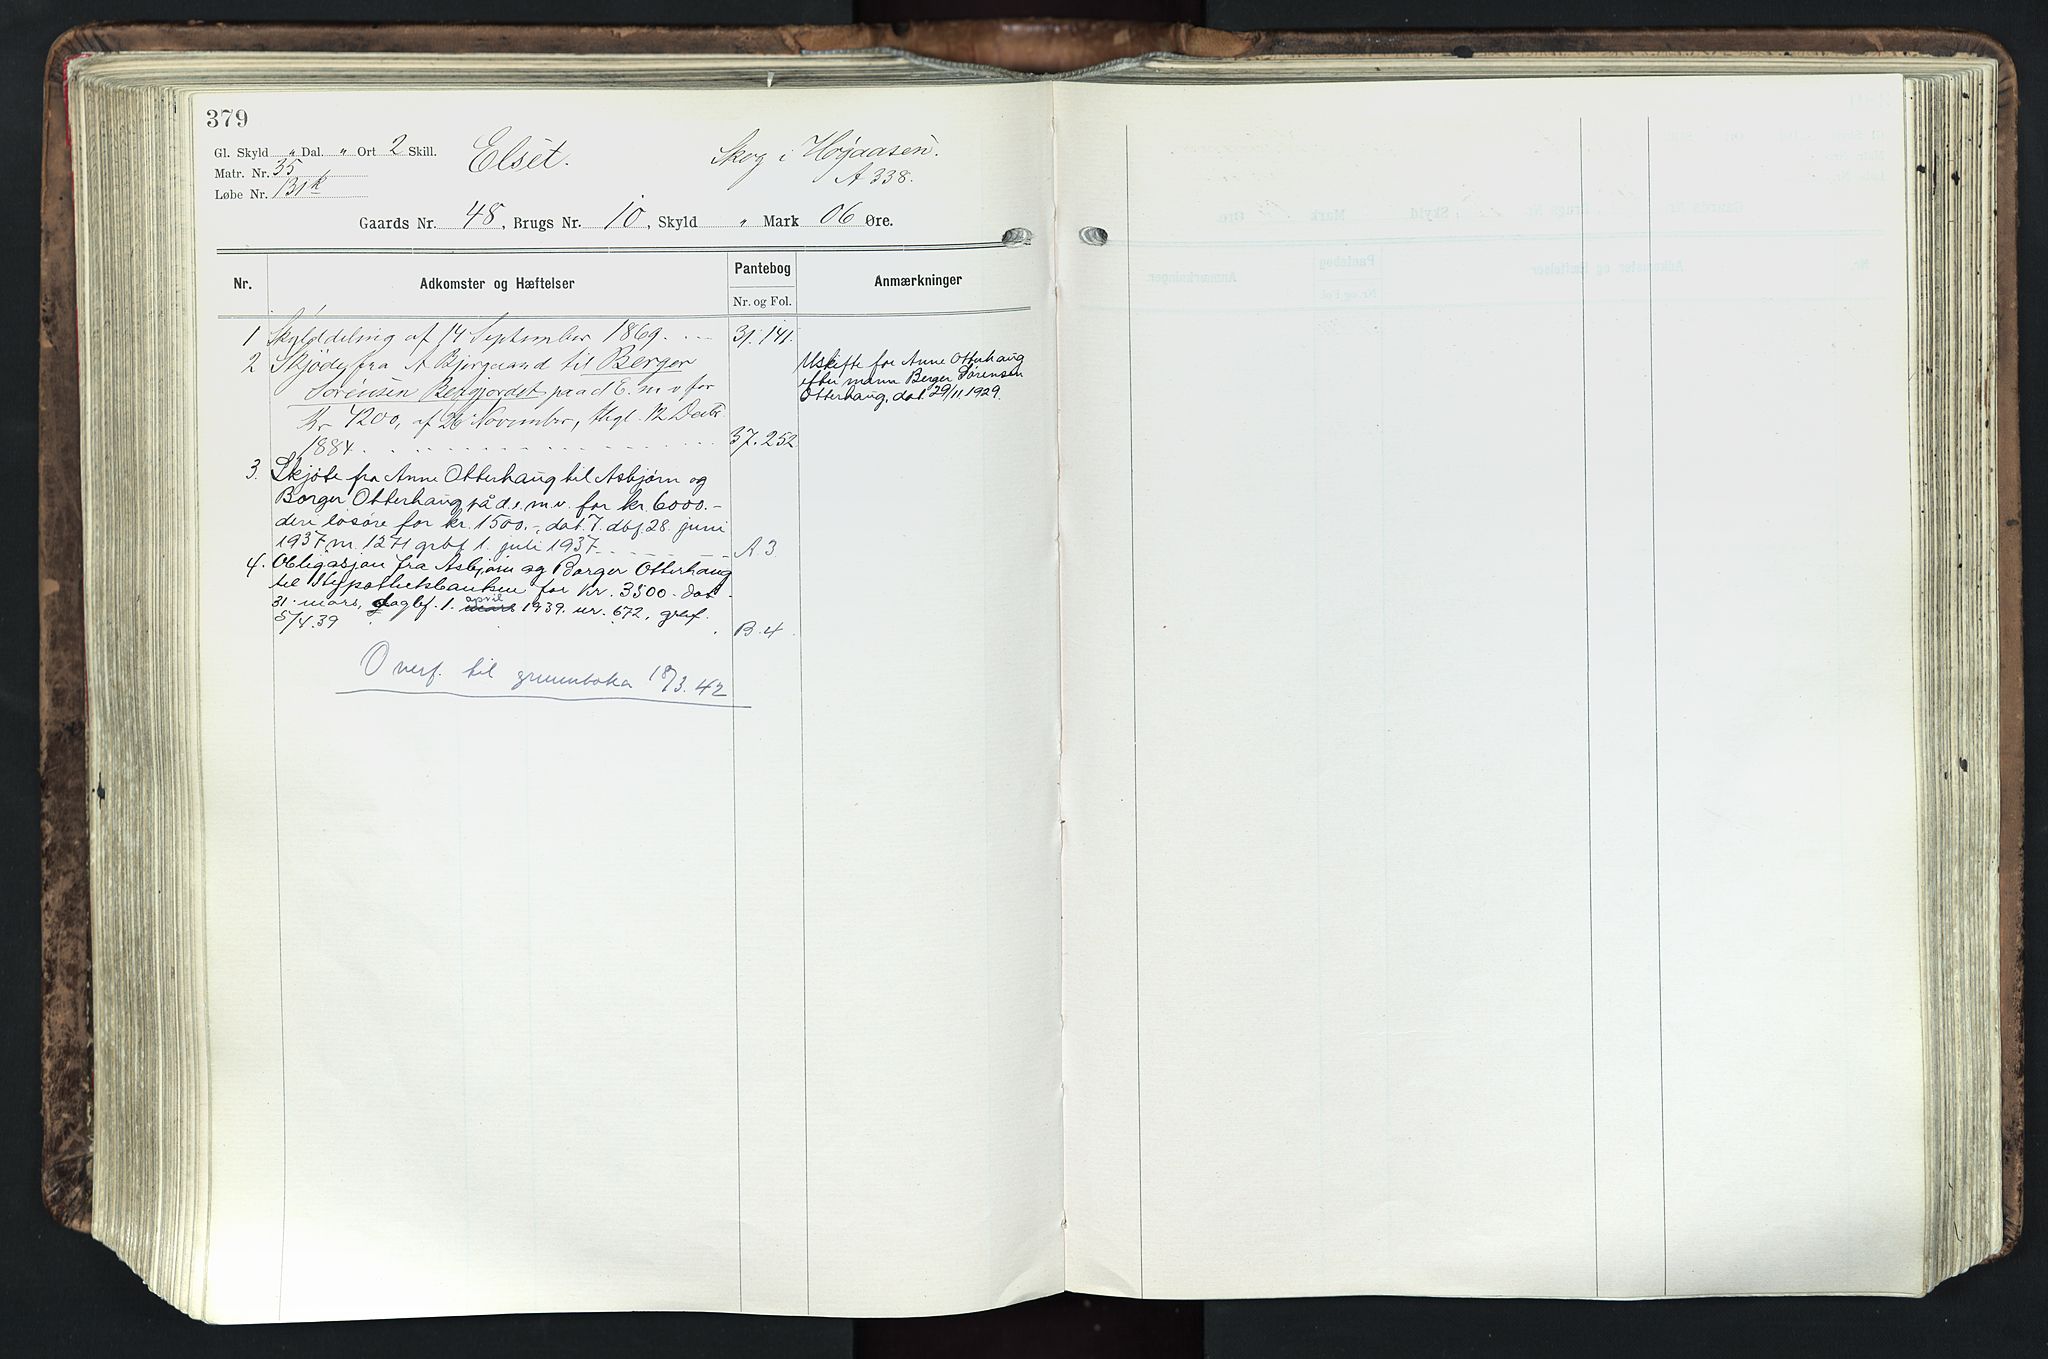 379
Gl. Skyld „ Dal. „ Ort 2 Skill.
Elset.
Skog i Højaasen.
A 338.
Matr. Nr. 35
Løbe Nr. 131k
Gaards Nr. 48, Brugs Nr. 10, Skyld „ Mark 06 Øre.
Nr.
Adkomster og Hæftelser
Pantebog
Nr. og Fol.
Anmærkninger
1 Skylddeling af 14 September 1869 . . . 31. 141.
2 Skjøde fra A Bjørgaard til Berger
Sørensen Bergjordet paa d E. m v for
Kr 4200, af 26 November, thgl. 12 Decbr
1884 . . . . . . . . . . 37. 252
Uskifte for Anne Otterhaug
efter mann Berger Sørensen
Otterhaug, dat. 29/11 1929.
3. Skjøte fra Anne Otterhaug til Asbjørn og
Borger Otterhaug på d. e. m. v. for kr. 6000.-
deri løsøre for kr. 1500.-, dat. 7. dbf. 28. juni
1937 nr. 1271 grbf 1. juli 1937 . . . . A. 3
4. Obligasjon fra Asbjørn og Borger Otterhaug
til Hypothekbanken for kr. 3500.- dat.
31. mars, dagbf. 1. mars april 1939. nr. 672, grbf.
5/4.39 . . . . B. 4
Overf. til grunnboka 18/3. 42